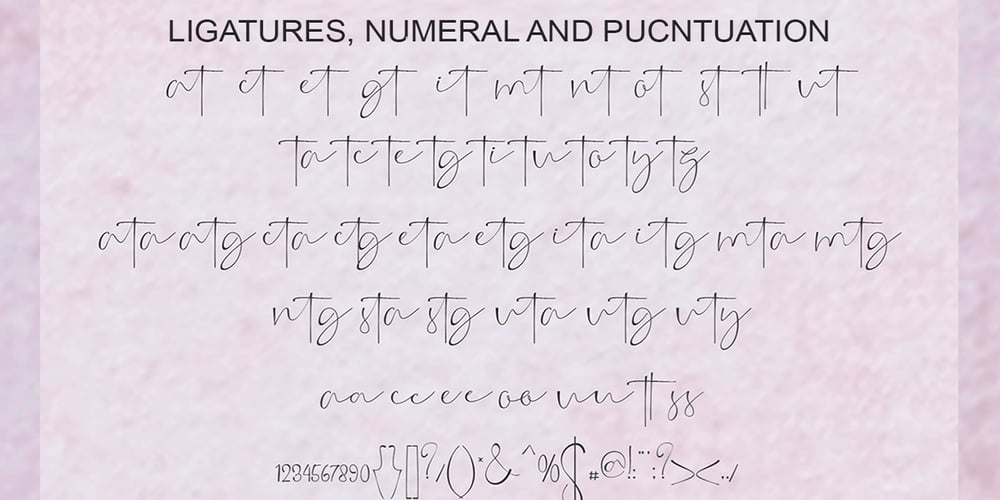 LIGATURES, NUMERAL AND PUCNTUATION
at ct et gt it mt nt ot st tt ut
ta tc te tg ti tu to ty tz
ata atg cta ctg eta etg ita itg mta mtg
ntg sta stg uta utg uty
aa cc ee oo uu tt ss
1234567890{}[]?/()*&^%$#@!:"":?><../